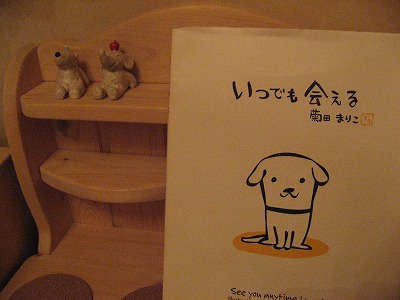 いつでも会える
菊田 まりこ
See you anytime